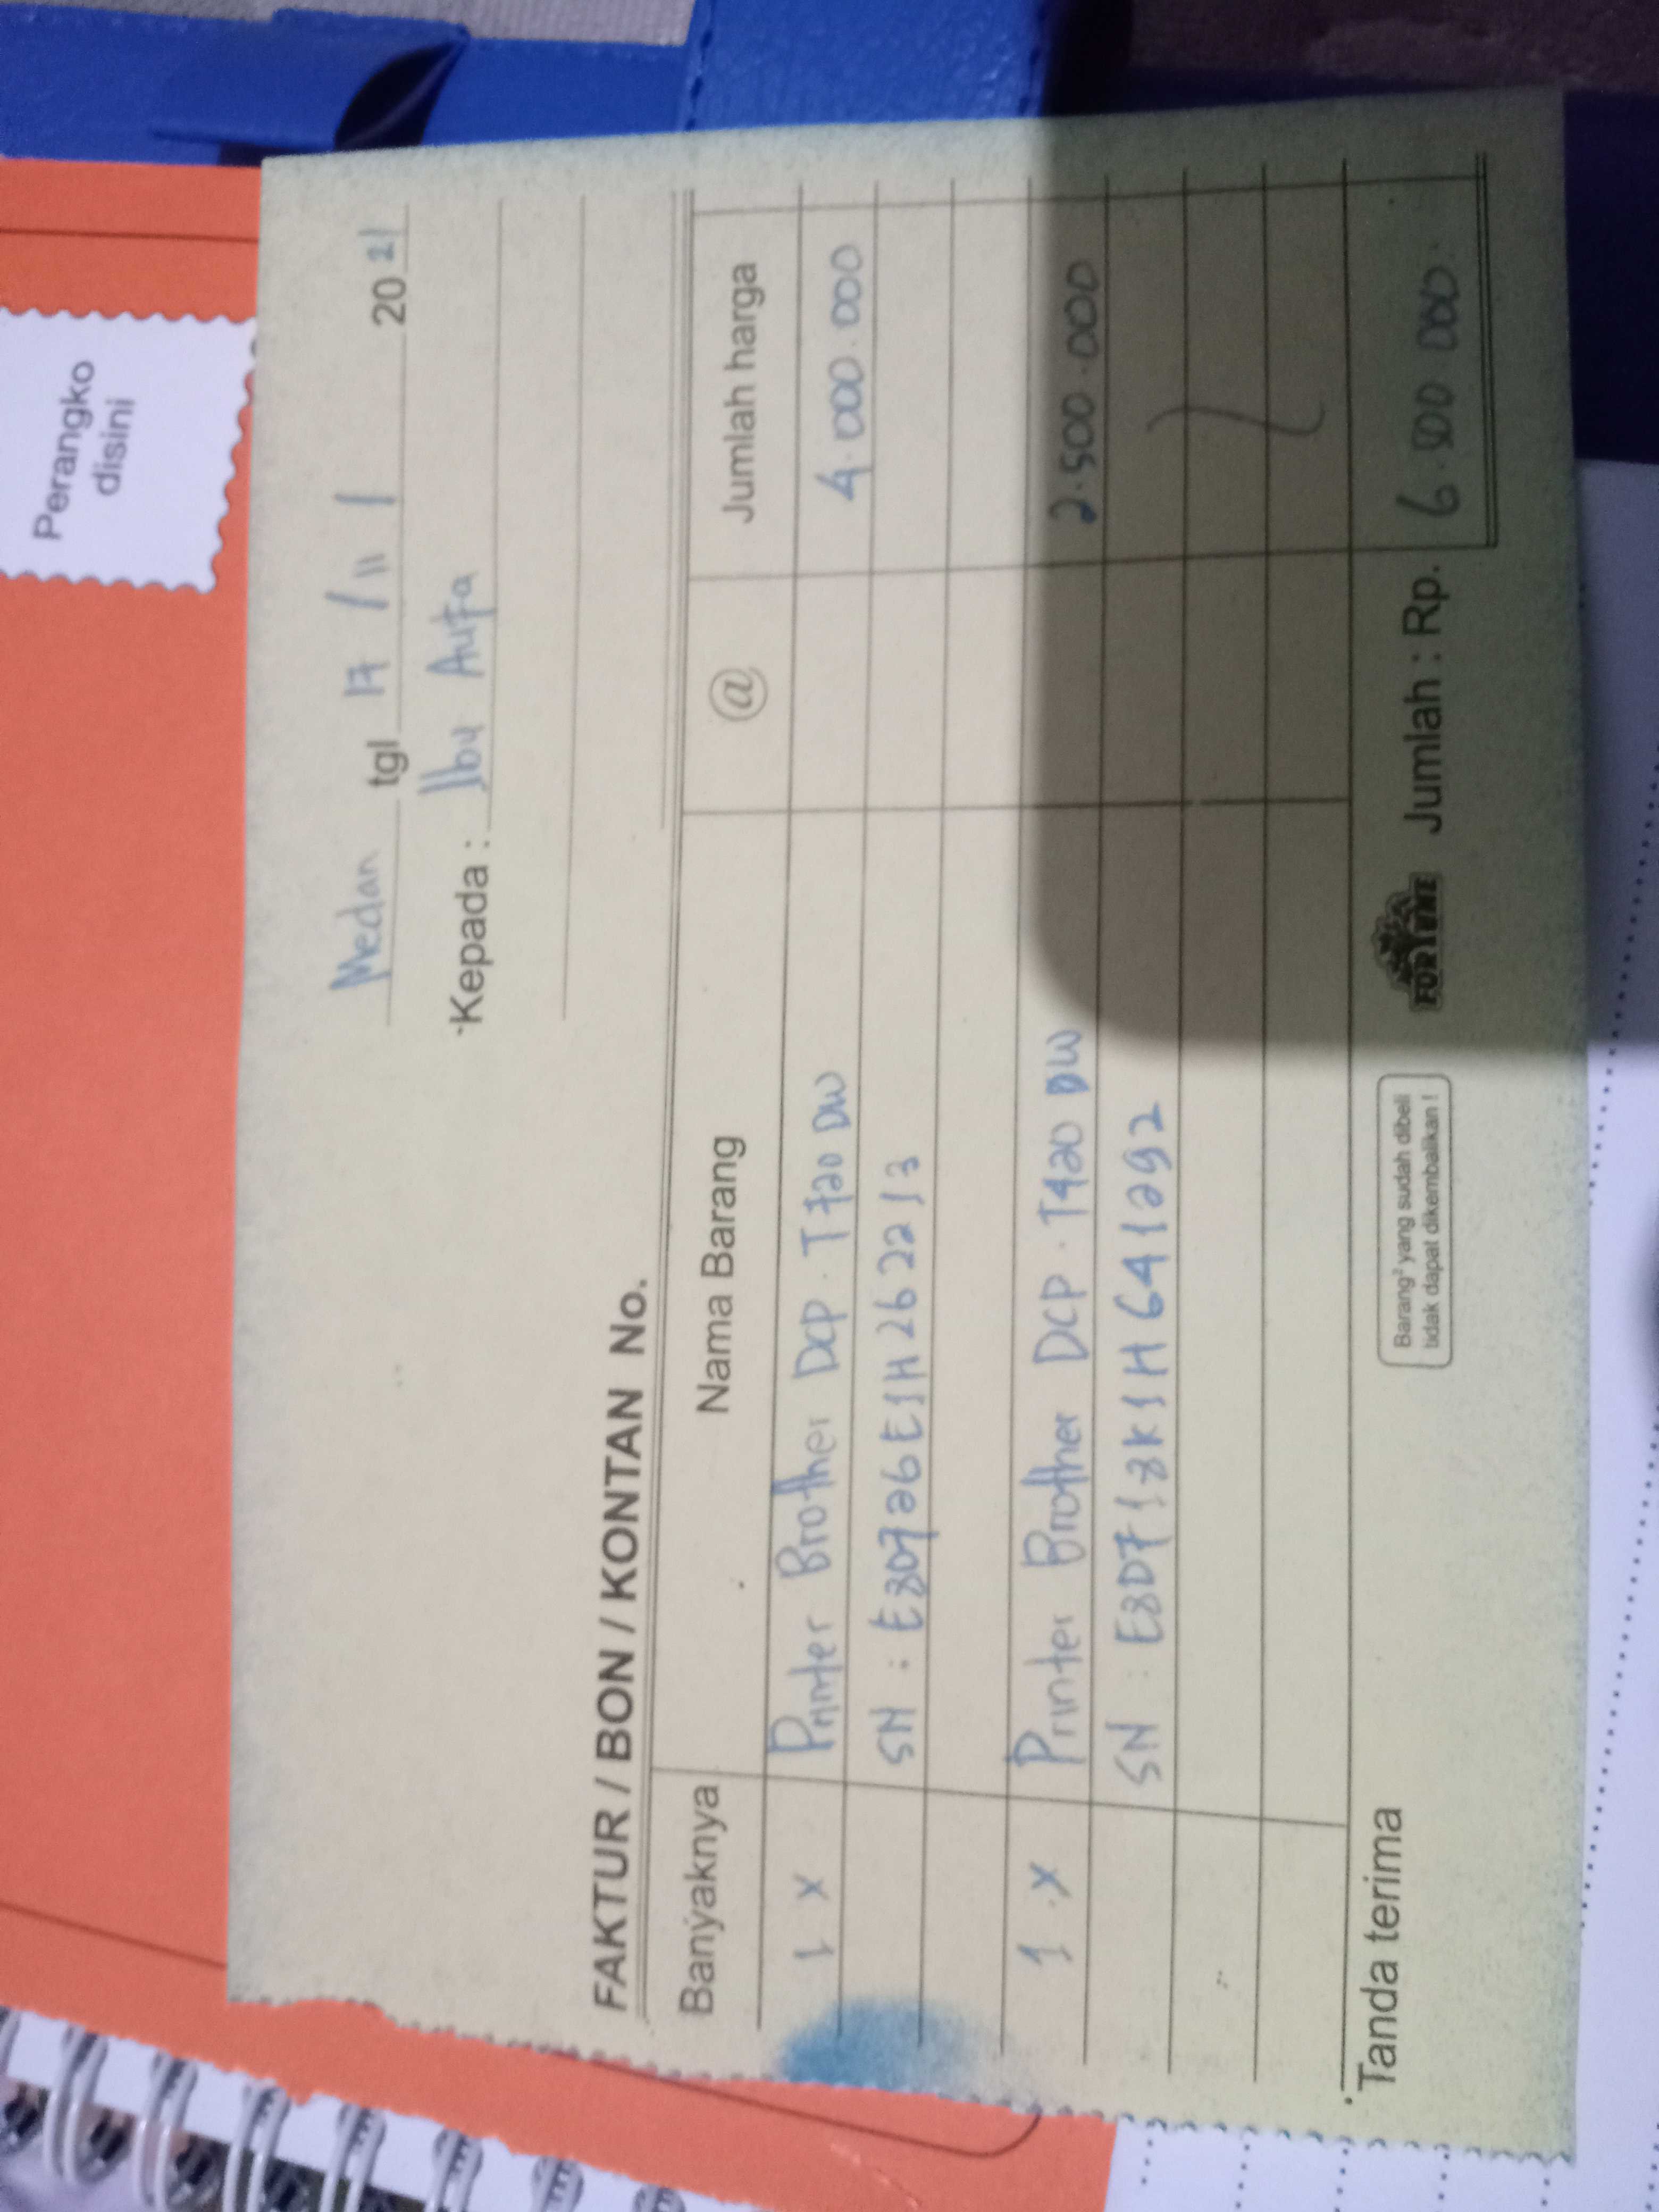 Perangko
disini
Medan tgl 17 / 11 / 20 21
Kepada : Ibu
FAKTUR / BON / KONTAN No.
Banyaknya Nama Barang @ Jumlah harga
1 x Printer Brother DCP . T720 DW 4.000.000
SN :
1 x Printer Brother DCP . T420 DW 2.500.000
SN :
Tanda terima
Barang² yang sudah dibeli
tidak dapat dikembalikan !
FORTUNE
Jumlah : Rp. 6.500 000